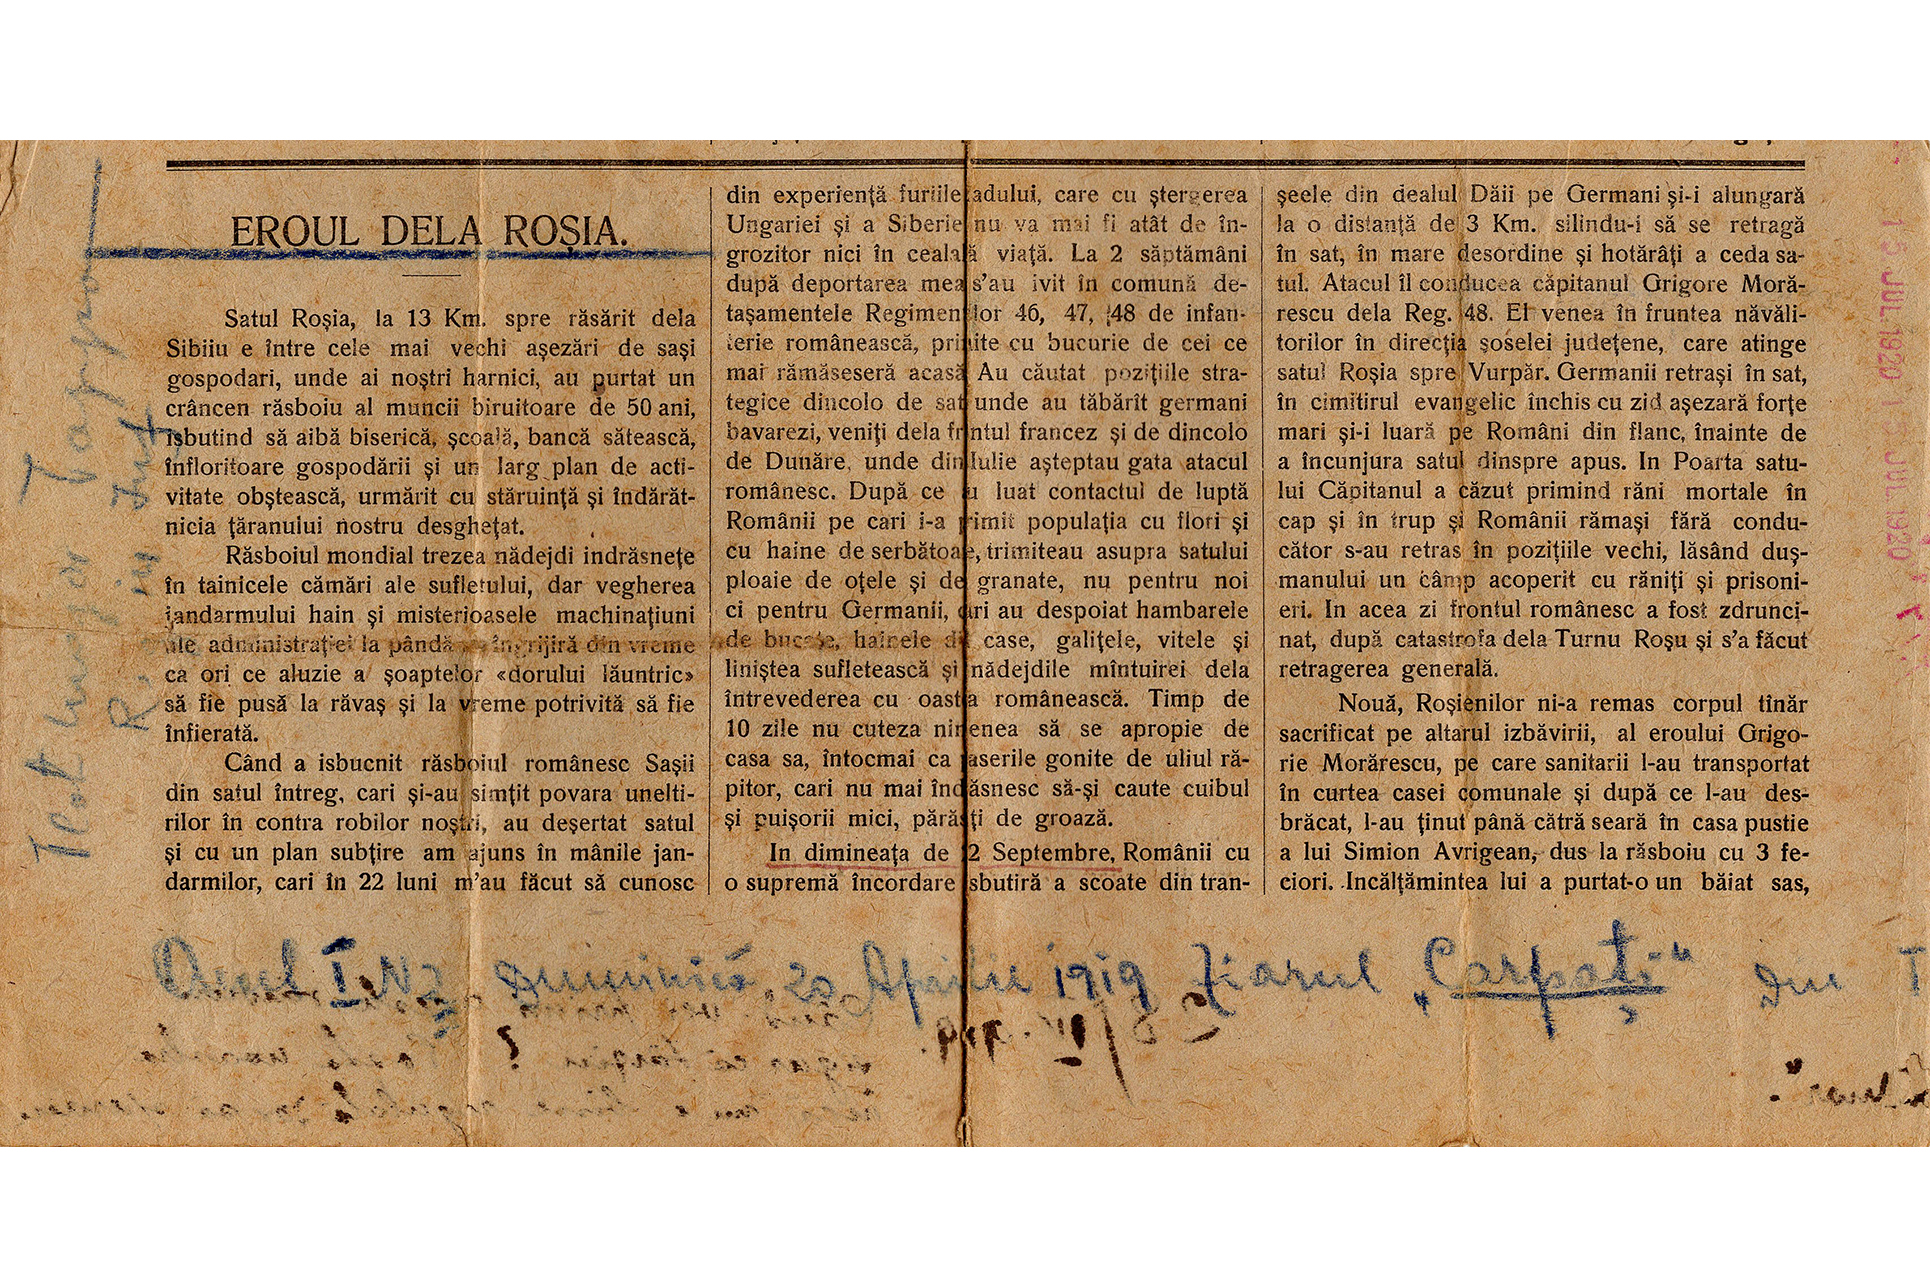 EROUL DELA ROȘIA.
Satul Roșia, la 13 Km. spre răsărit dela
Sibiiu e între cele mai vechi așezări de sași
gospodari, unde ai noștri harnici, au purtat un
crâncen răsboiu al muncii biruitoare de 50 ani,
isbutind să aibă biserică, școală, bancă sătească,
înfloritoare gospodării și un larg plan de acti-
vitate obștească, urmărit cu stăruință și îndărăt-
nicia țăranului nostru desghețat.
Răsboiul mondial trezea nădejdi indrăsnețe
în tainicele cămări ale sufletului, dar vegherea
jandarmului hain și misterioasele machinațiuni
ale administrației la pândă îngrijiră din vreme
ca ori ce aluzie a șoaptelor «dorului lăuntric»
să fie pusă la răvaș și la vreme potrivită să fie
înfierată.
Când a isbucnit răsboiul românesc Sașii
din satul întreg, cari și-au simțit povara unelti-
rilor în contra robilor noștri, au deșertat satul
și cu un plan subțire am ajuns în mânile jan-
darmilor, cari în 22 luni m'au făcut să cunosc
din experiență furiile adului, care cu ștergerea
Ungariei și a Siberie nu va mai fi atât de în-
grozitor nici în cealal ă viață. La 2 săptămâni
după deportarea mea s'au ivit în comună de-
tașamentele Regimen lor 46, 47, 48 de infan-
terie românească, pri ite cu bucurie de cei ce
mai rămăseseră acasă Au căutat pozițiile stra-
tegice dincolo de sat unde au tăbărît germani
bavarezi, veniți dela fr ntul francez și de dincolo
de Dunăre, unde din Iulie așteptau gata atacul
românesc. După ce u luat contactul de luptă
Românii pe cari i-a rimit populația cu flori și
cu haine de serbătoa e, trimiteau asupra satului
ploaie de oțele și de granate, nu pentru noi
ci pentru Germanii, ri au despoiat hambarele
de bucate, hainele d case, galițele, vitele și
liniștea sufletească și nădejdile mîntuirei dela
întrevederea cu oast a românească. Timp de
10 zile nu cuteza nir enea să se apropie de
casa sa, întocmai ca aserile gonite de uliul ră-
pitor, cari nu mai înd ăsnesc să-și caute cuibul
și puișorii mici, părăs ți de groază.
In dimineața de 2 Septembre, Românii cu
o supremă încordare sbutiră a scoate din tran-
șeele din dealul Dăii pe Germani și-i alungară
la o distanță de 3 Km. silindu-i să se retragă
în sat, în mare desordine și hotărâți a ceda sa-
tul. Atacul îl conducea căpitanul Grigore Moră-
rescu dela Reg. 48. El venea în fruntea năvăli-
torilor în direcția șoselei județene, care atinge
satul Roșia spre Vurpăr. Germanii retrași în sat,
în cimitirul evangelic închis cu zid așezară forțe
mari și-i luară pe Români din flanc, înainte de
a încunjura satul dinspre apus. In Poarta satu-
lui Căpitanul a căzut primind răni mortale în
cap și în trup și Românii rămași fără condu-
cător s-au retras în pozițiile vechi, lăsând duș-
manului un câmp acoperit cu răniți și prisoni-
eri. In acea zi frontul românesc a fost zdrunci-
nat, după catastrofa dela Turnu Roșu și s'a făcut
retragerea generală.
Nouă, Roșienilor ni-a remas corpul tînăr
sacrificat pe altarul izbăvirii, al eroului Grigo-
rie Morărescu, pe care sanitarii l-au transportat
în curtea casei comunale și după ce l-au des-
brăcat, l-au ținut până cătră seară în casa pustie
a lui Simion Avrigean, dus la răsboiu cu 3 fe-
ciori. Incălțămintea lui a purtat-o un băiat sas,
Anul I Nº2 Duminică 20 Aprilie 1919 Ziarul „Carpați" din T
15 JUL. 1920
15 JUL. 1920